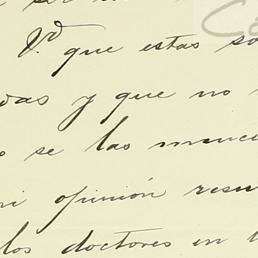 V.d que estas so
das y que no
se las
mi opinión resu
los doctores en